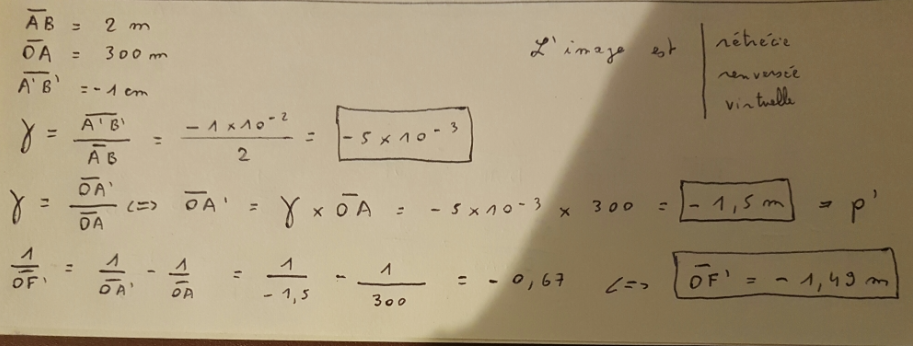 A̅B̅ = 2 m
O̅A̅ = 300 m
A̅'̅B̅'̅ = -1 cm
L'image est | rétrécie
renversée
virtuelle
γ = A̅'̅B̅'̅ / A̅B̅ = -1 × 10⁻² / 2 = -5 × 10⁻³
γ = O̅A̅' / O̅A̅ <=> O̅A̅' = γ × O̅A̅ = -5 × 10⁻³ × 300 = -1,5 m = p'
1 / O̅F̅' = 1 / O̅A̅' - 1 / O̅A̅ = 1 / -1,5 - 1 / 300 = -0,67 <=> O̅F̅' = -1,49 m